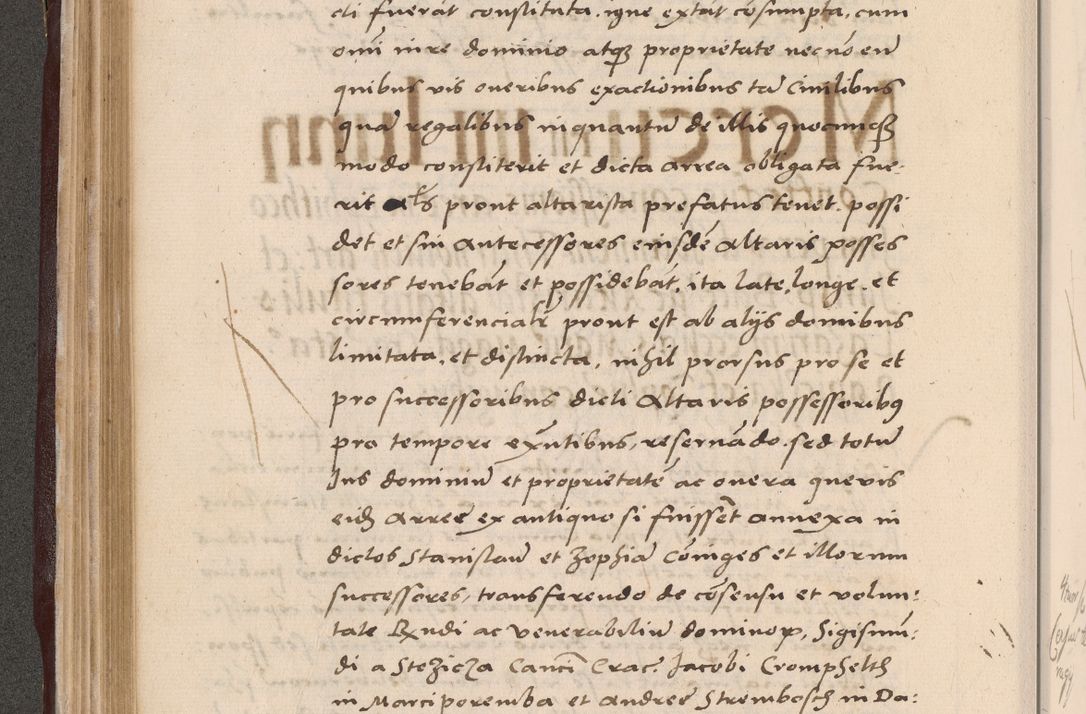 cti fuerāt constituta, igne extāt cōsumpta, cum
omī iure dominio atqȝ proprietate necnō eū
quibus vis oneribus exactionibus tā Ciuilibus
quā regalibus inquantū de illis quocunqȝ
modo constiterit et dicta arrea obligata fue-
rit als prout altarista prefatus tenet, possi
det et sui antecessores eiusdē Altaris posses
sores tenebāt et possidebāt, ita late, longe, et
circumferencialr̄ prout est ab alijs domibus
limitata, et distincta, nihil prorsus pro se et
pro successoribus dicti Altaris possessoribȝ
pro tempore exn̄tibus, reseruādo, sed totū
Jus dominiū et proprietatē ac onera queuis
eidȝ Arree ex antiquo si fuissēt annexa in
dictos Stanislaū et Zophiā Cōniges et illorum
successores, transferendo de cōsensu et volun:
tate Rn̄di ac venerabiliū dominoꝝ, Sigismū:
di a Stezicza Cancī Crac̄. Jacobi Cromphelth
in Marciporemba et Andree Strembosch in Da: